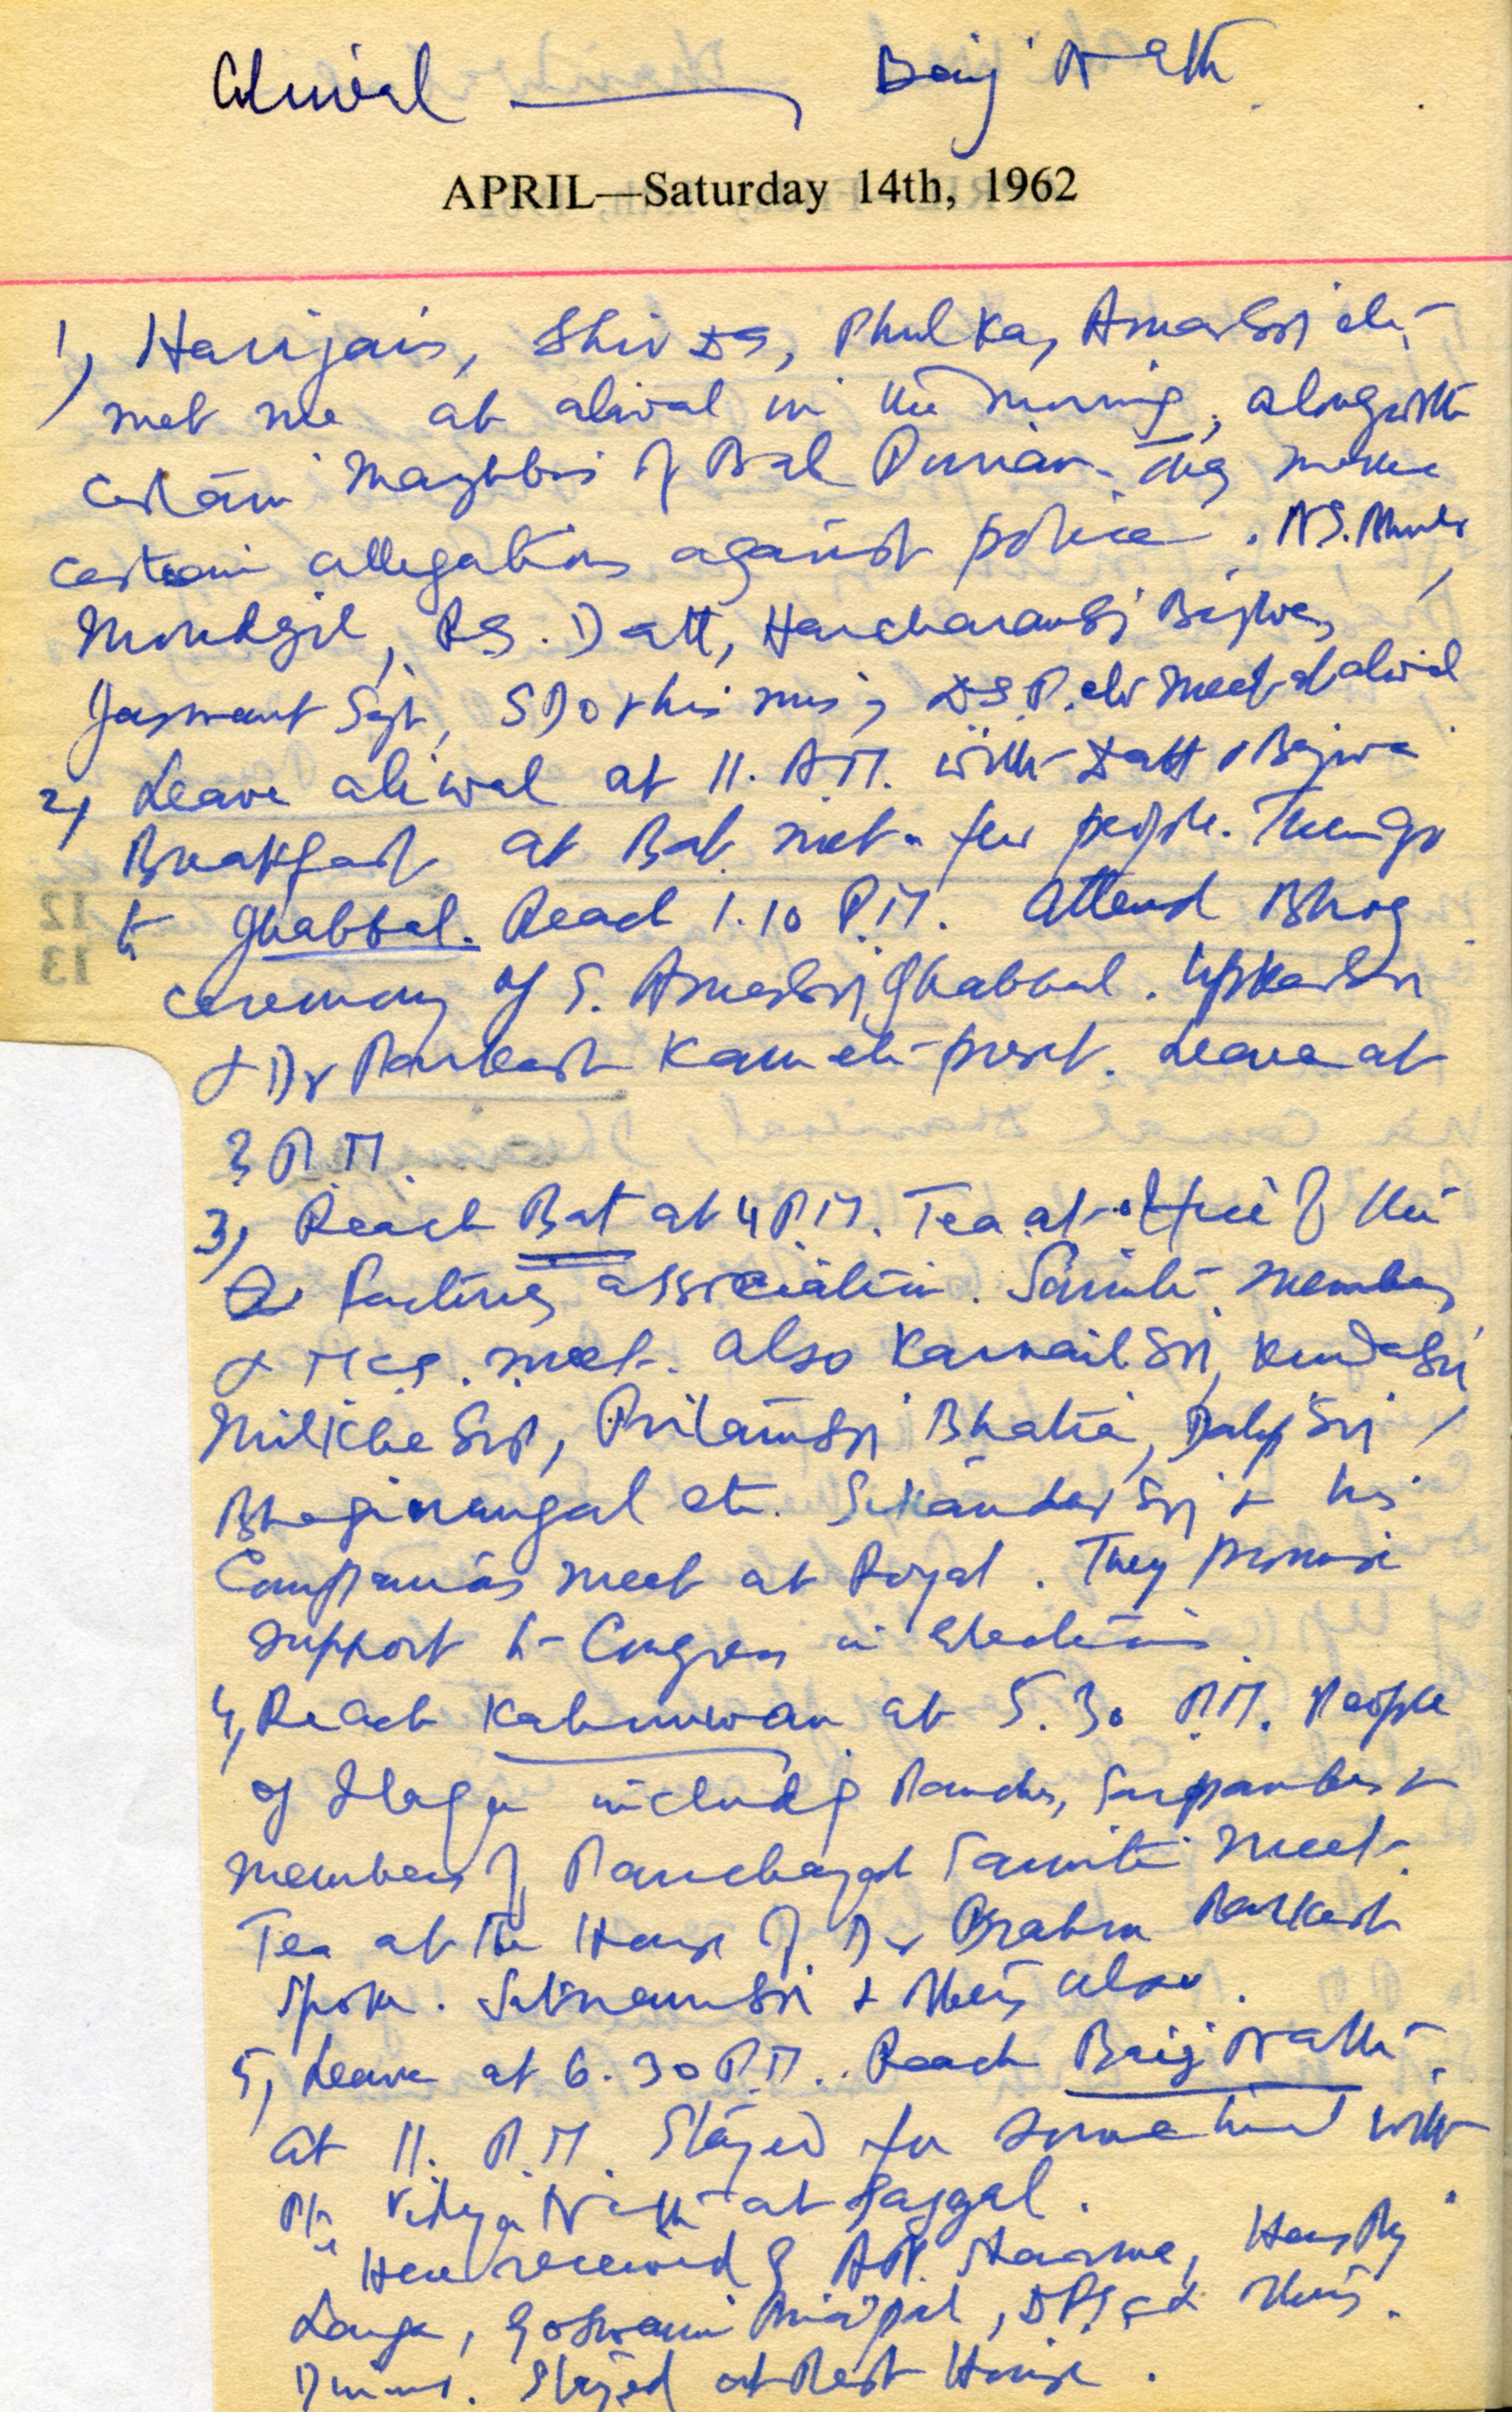 Aliwal — Baij Nath
APRIL—Saturday 14th, 1962
1) Harijans, Shiv DS, Phul Ka, Amar Sgh etc
met me at aliwal in the morning, alongwith
certain Mazhbis of Bal Purian. They made
certain allegations against police. N.S.
Moudgil, R.S. Datt, Harcharan Sgh Bajwa,
Jaswant Sgh, SDO & his Mrs, DSP. etc meet at aliwal
2) Leave aliwal at 11. A.M. with Datt & Bajwa
Breakfast at Bat. met a few people. Then go
to Jhabbal. Reach 1.10 P.M. Attend Bhog
ceremony of S. Amar Sgh Jhabbal. Upkar Sgh
& Dr Parkash Kaur etc prest. Leave at
3 P.M.
3) Reach Bat at 4 P.M. Tea at office of the
Factories association. Samiti members
& MCs. meet. also Karnail Sgh, Kunda Sgh
Milkha Sgh, Pritam Sgh Bhatia, Dalip Sgh
Bhaginangal etc. Sikandar Sgh & his
Companions meet at Royal. They promise
support to Congress in elections
4) Reach Kahnuwan at 5.30 P.M. People
of Ilaqa includg Panches, Sarpanches &
members of Panchayat Samiti meet.
Tea at the House of Dr Brahm Parkash
spoke. Satnam Sgh & others also.
5) Leave at 6.30 P.M.. Reach Baij Nath
at 11. P.M. Stayed for some time with
Pt. Vidya Nath at Gaggal.
Here received by Sharma, Hans Raj
Goswami Principal, & others.
Dinner. Stayed at Rest House.